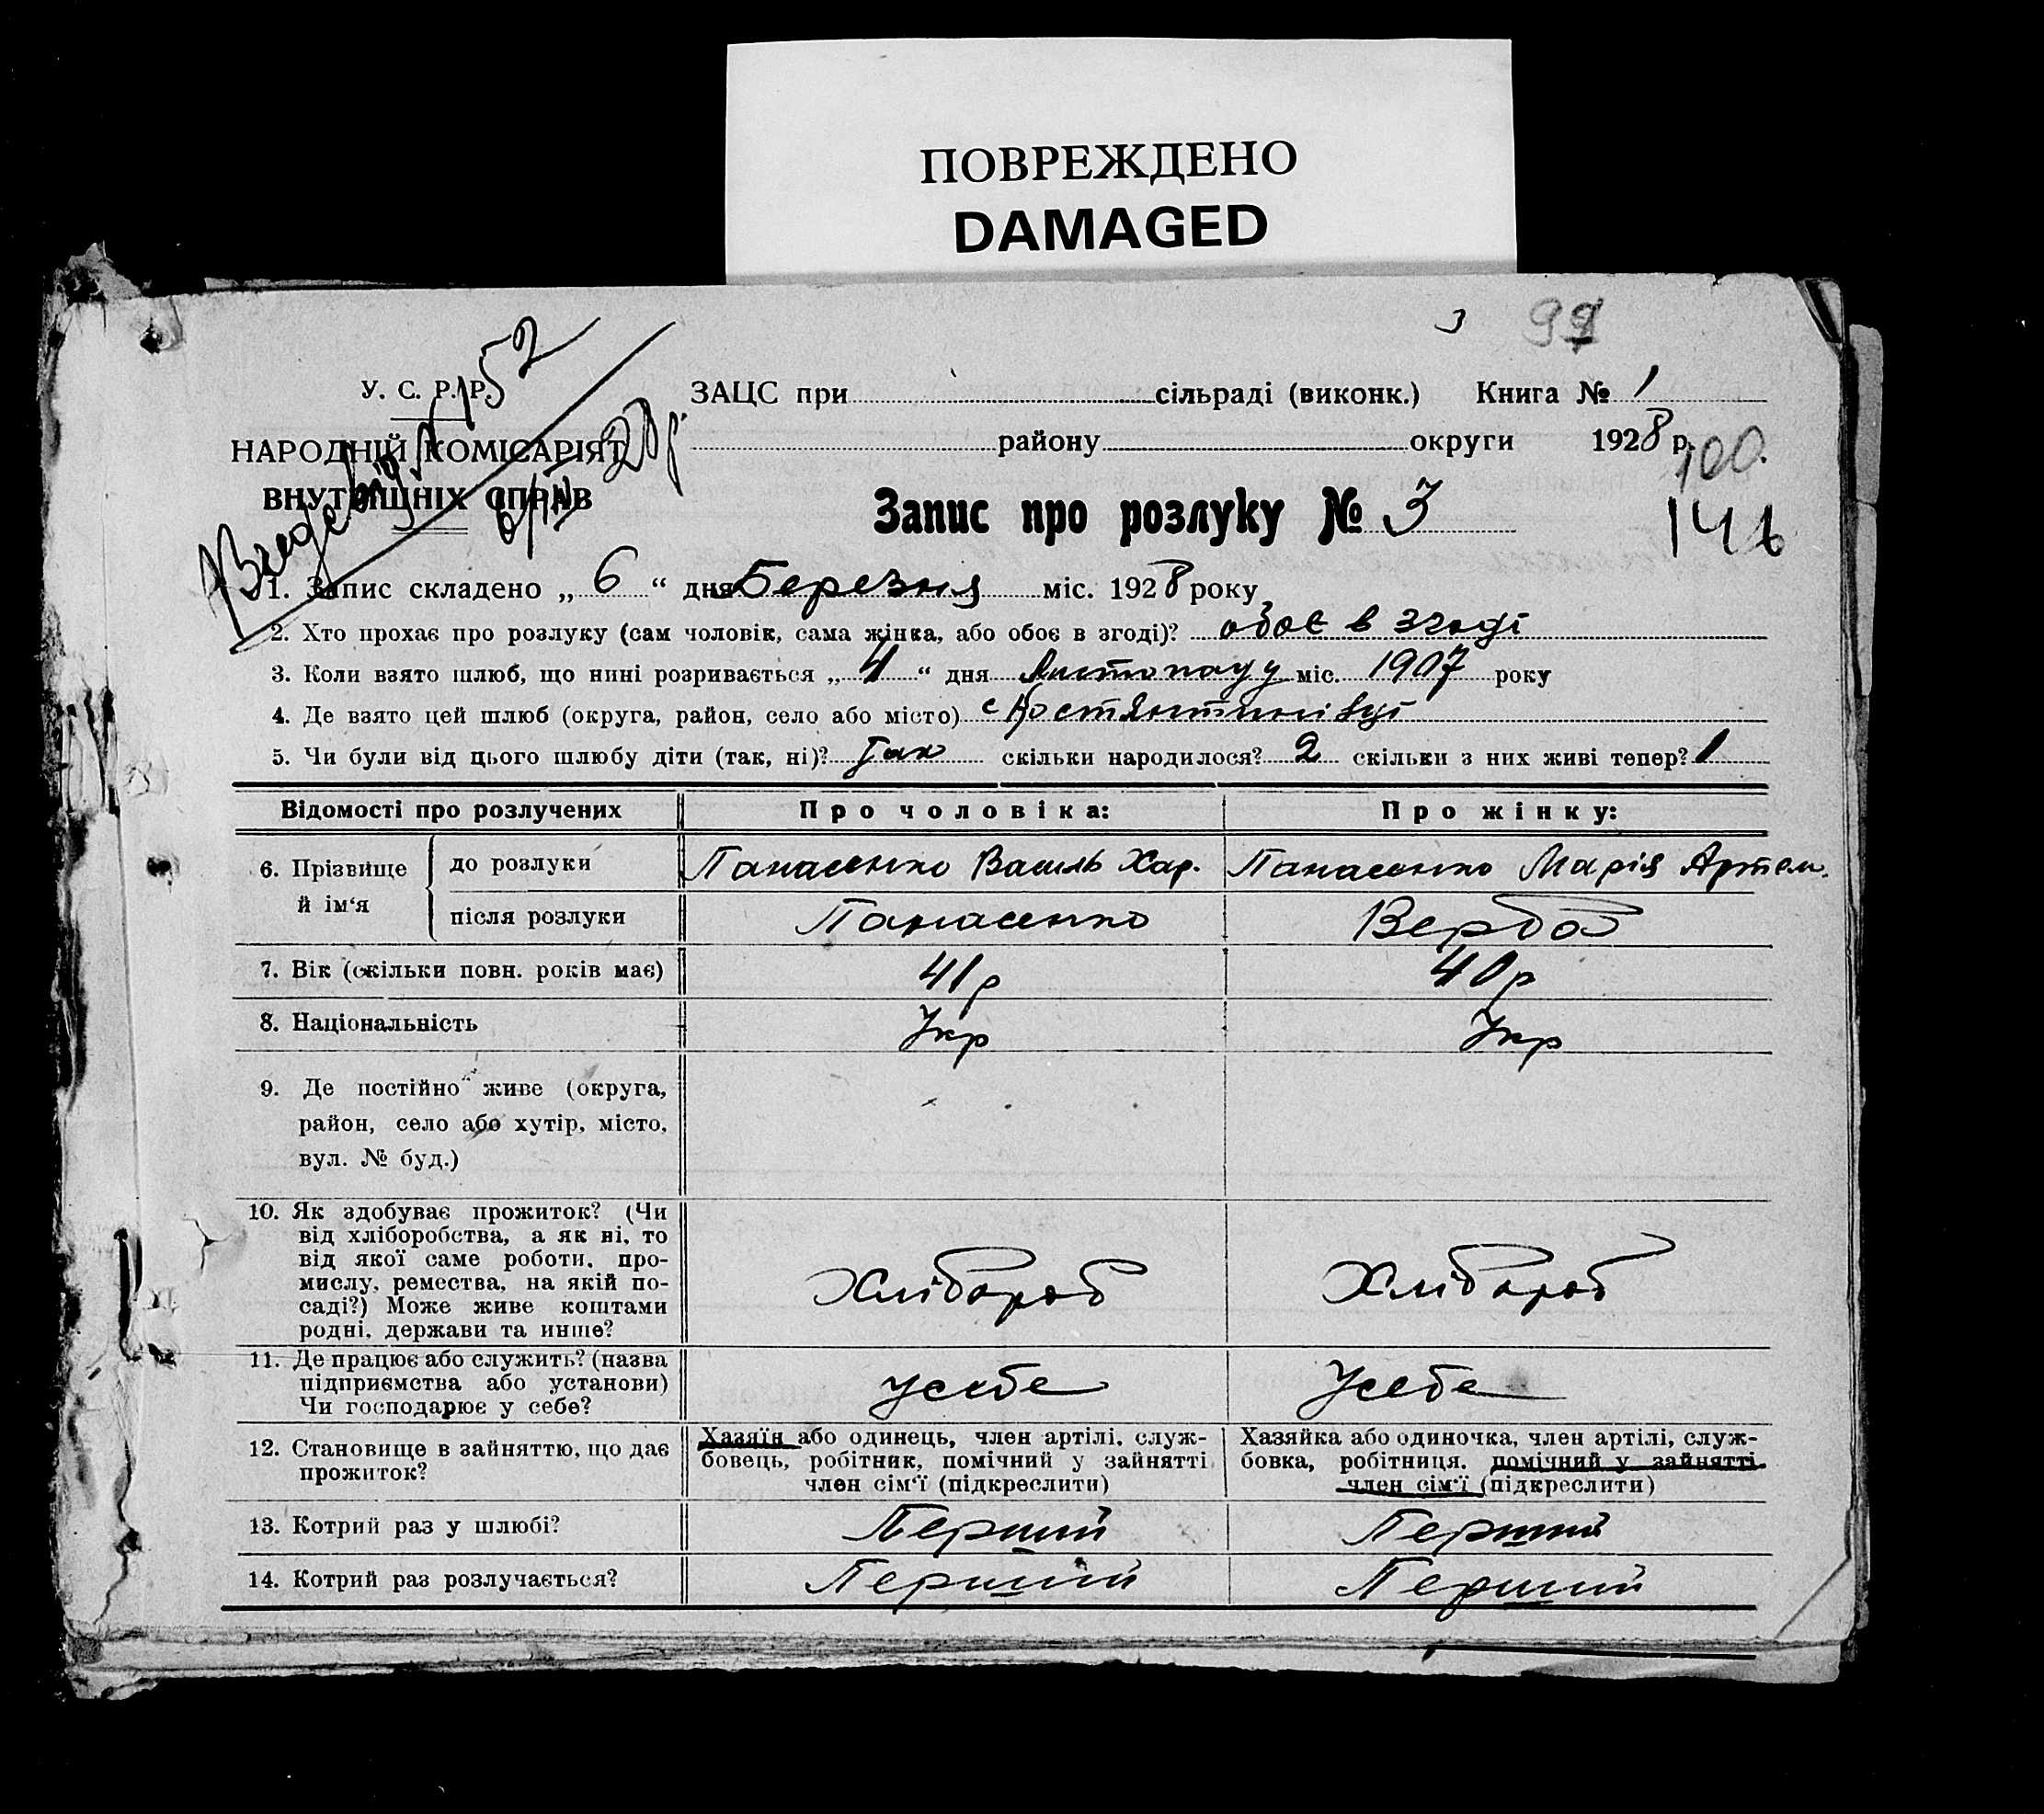 ПОВРЕЖДЕНО
DAMAGED
З 99
У. С. Р. Р. 52
ЗАЦС при сільраді (виконк.) Книга № 1
НАРОДНІЙ КОМІСАРІЯТ
ВНУТРІШНІХ СПРАВ
району округи 1928 р.
100.
Запис про розлуку № 3
146
1. Запис складено „ 6 “ дня Березня міс. 1928 року
2. Хто прохає про розлуку (сам чоловік, сама жінка, або обоє в згоді)? обоє в згоді
3. Коли взято шлюб, що нині розривається „ 4 “ дня Листопаду міс. 1907 року
4. Де взято цей шлюб (округа, район, село або місто) с Костянтинівці
5. Чи були від цього шлюбу діти (так, ні)? так скільки народилося? 2 скільки з них живі тепер? 1
Відомості про розлучених Про чоловіка: Про жінку:
6. Прізвище й ім‘я
до розлуки Панасенко Василь Хар. Панасенко Марія Артем.
після розлуки Панасенко Верба
7. Вік (скільки повн. років має) 41 р 40 р
8. Національність Укр Укр
9. Де постійно живе (округа,
район, село або хутір, місто,
вул. № буд.)
10. Як здобуває прожиток? (Чи
від хліборобства, а як ні, то
від якої саме роботи, про-
мислу, ремества, на якій по-
саді?) Може живе коштами
родні, держави та инше?
Хлібороб Хлібороб
11. Де працює або служить? (назва
підприємства або установи)
Чи господарює у себе?
усебе Усебе
12. Становище в зайняттю, що дає
прожиток?
Хазяїн або одинець, член артілі, служ-
бовець, робітник, помічний у зайнятті
член сім‘ї (підкреслити)
Хазяйка або одиночка, член артілі, служ-
бовка, робітниця, помічний у зайнятті
член сім‘ї (підкреслити)
13. Котрий раз у шлюбі? Перший Перший
14. Котрий раз розлучається? Перший Перший